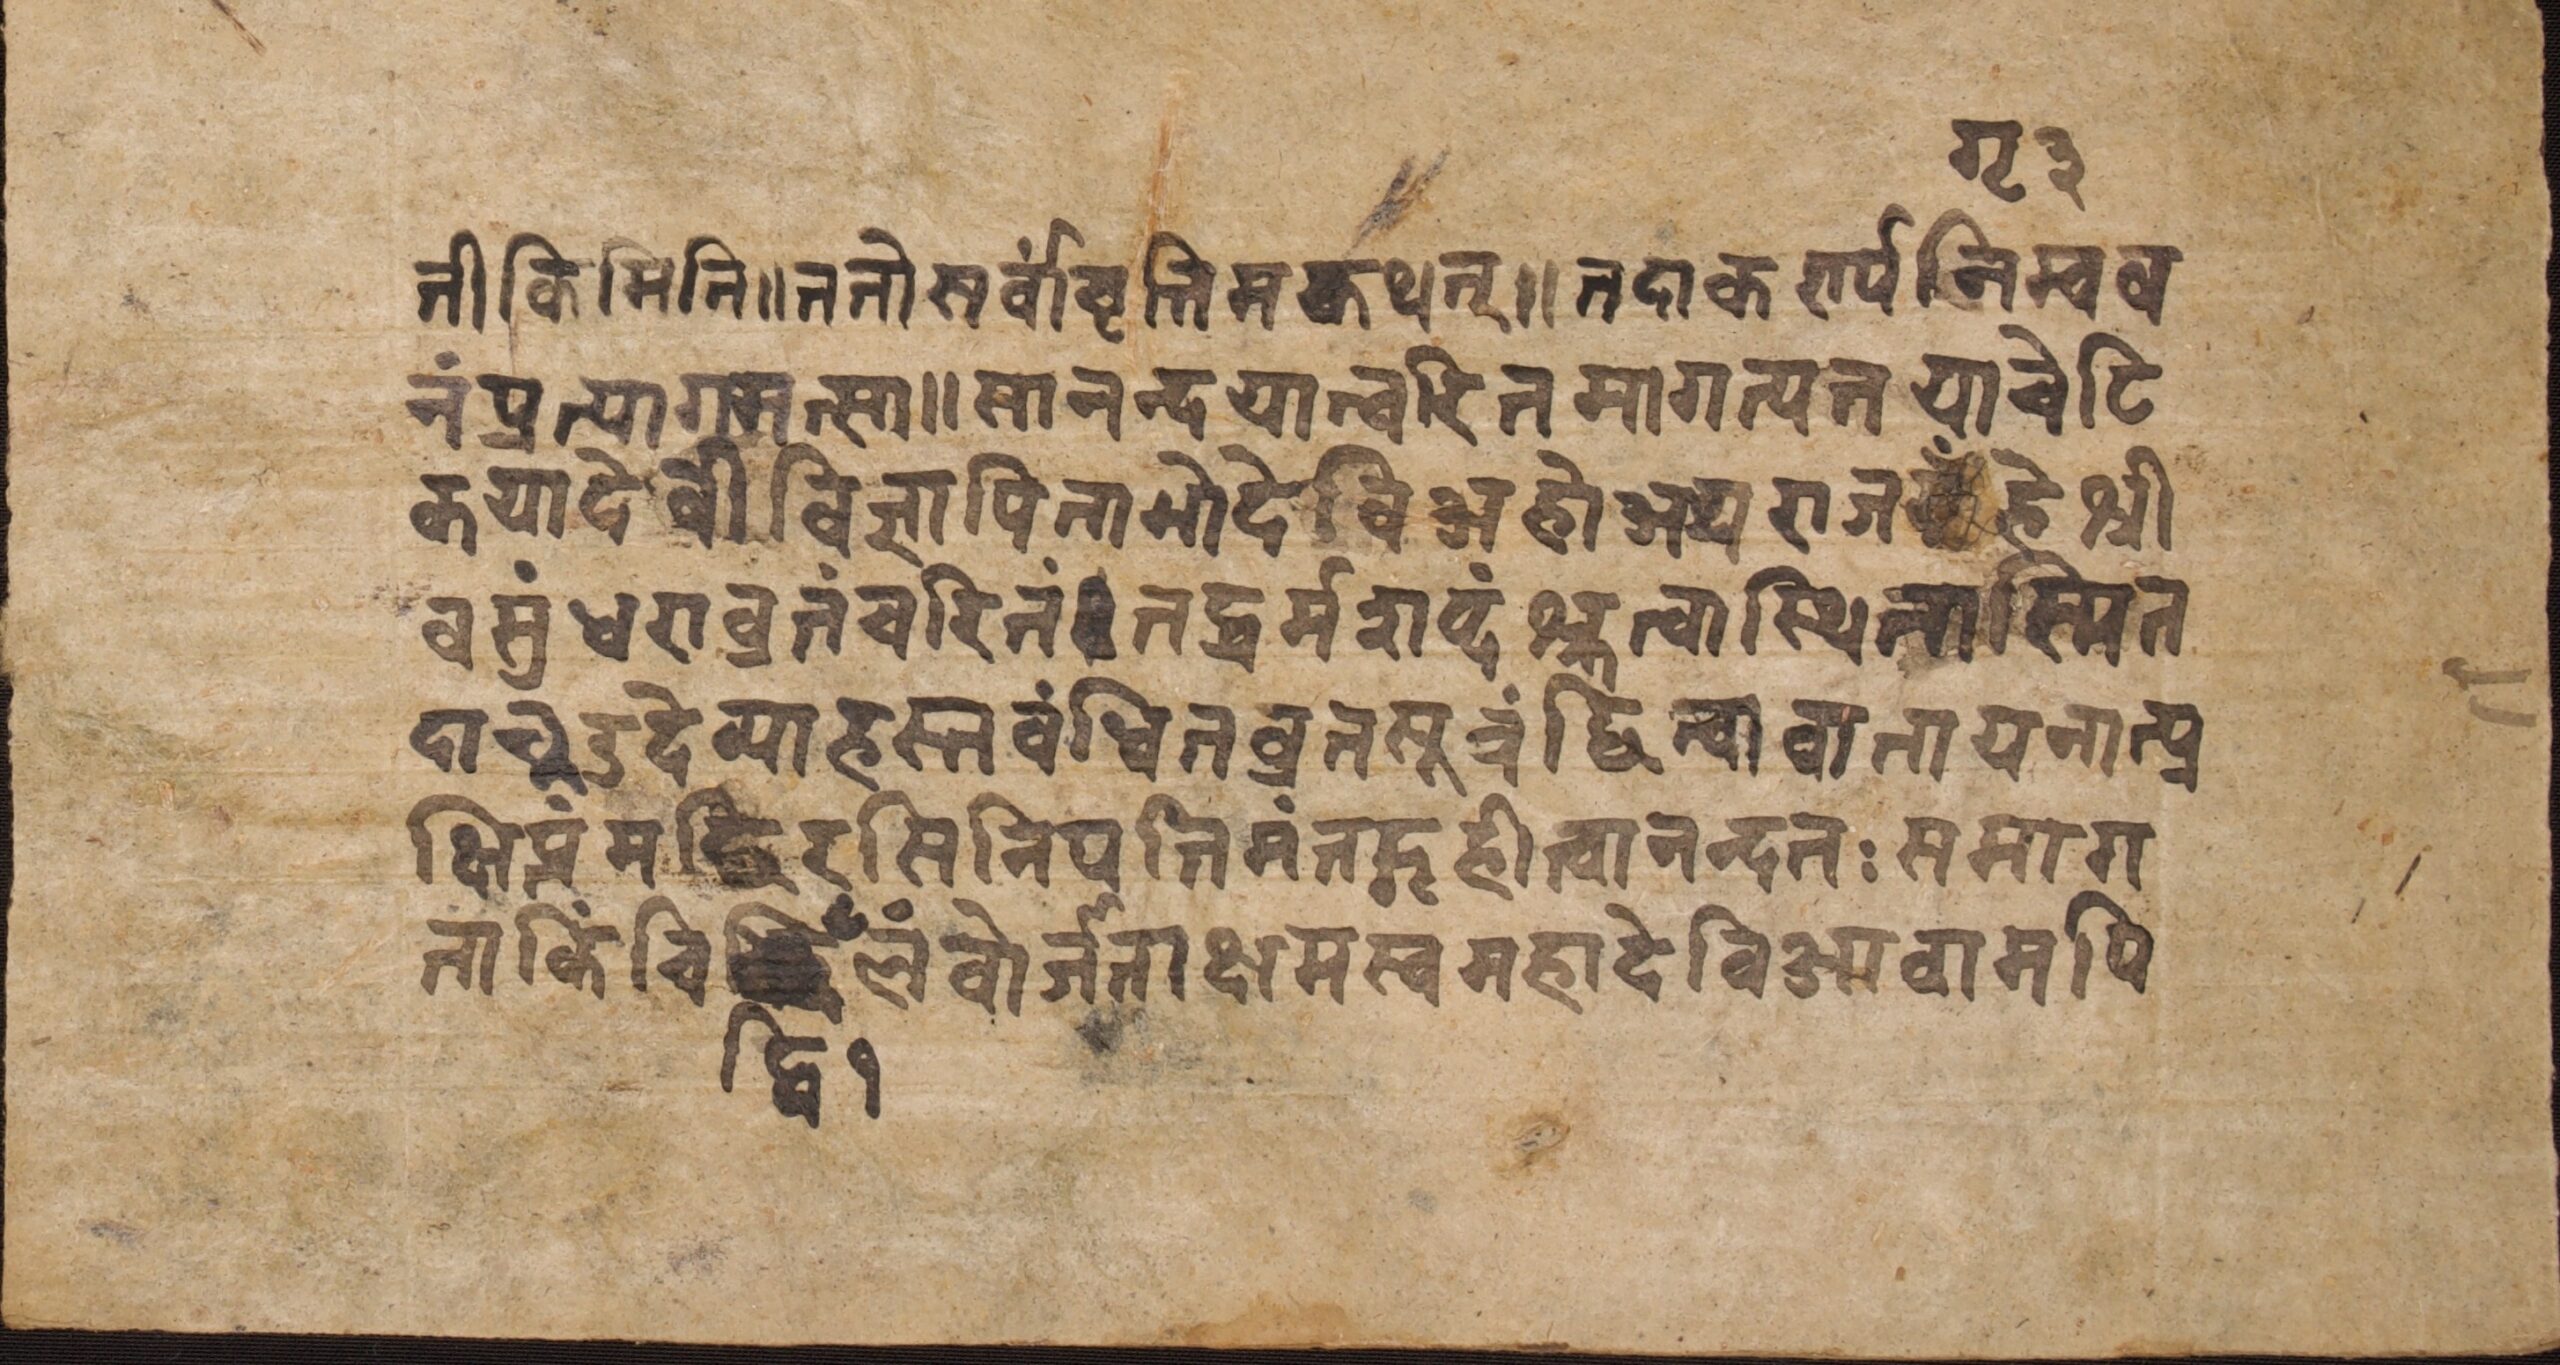 गृ ३
तीकिमिति॥ततोसर्वांवृत्तिमकथत्॥तदाकरार्पत्तिम्वव
तंप्रत्यागमत्सा॥सानन्दयात्वरितमागत्यतयाचेटि
कयादेवीविज्ञापितामोदेविअहोअद्यराज हेश्री
वसुंधराव्रतंचरितं।तद्धर्मशब्दंश्रुत्वास्थित्वास्मित
दा देव्याहस्तवंधितव्रतसूत्रंछित्वावातायनात्प्र
क्षिप्तं सिनिपतितमंतद्गृहीत्वानन्दतः समाग
ताकिंचि लंवोर्जताक्षमस्वमहादेविआवामपि
द्वि १